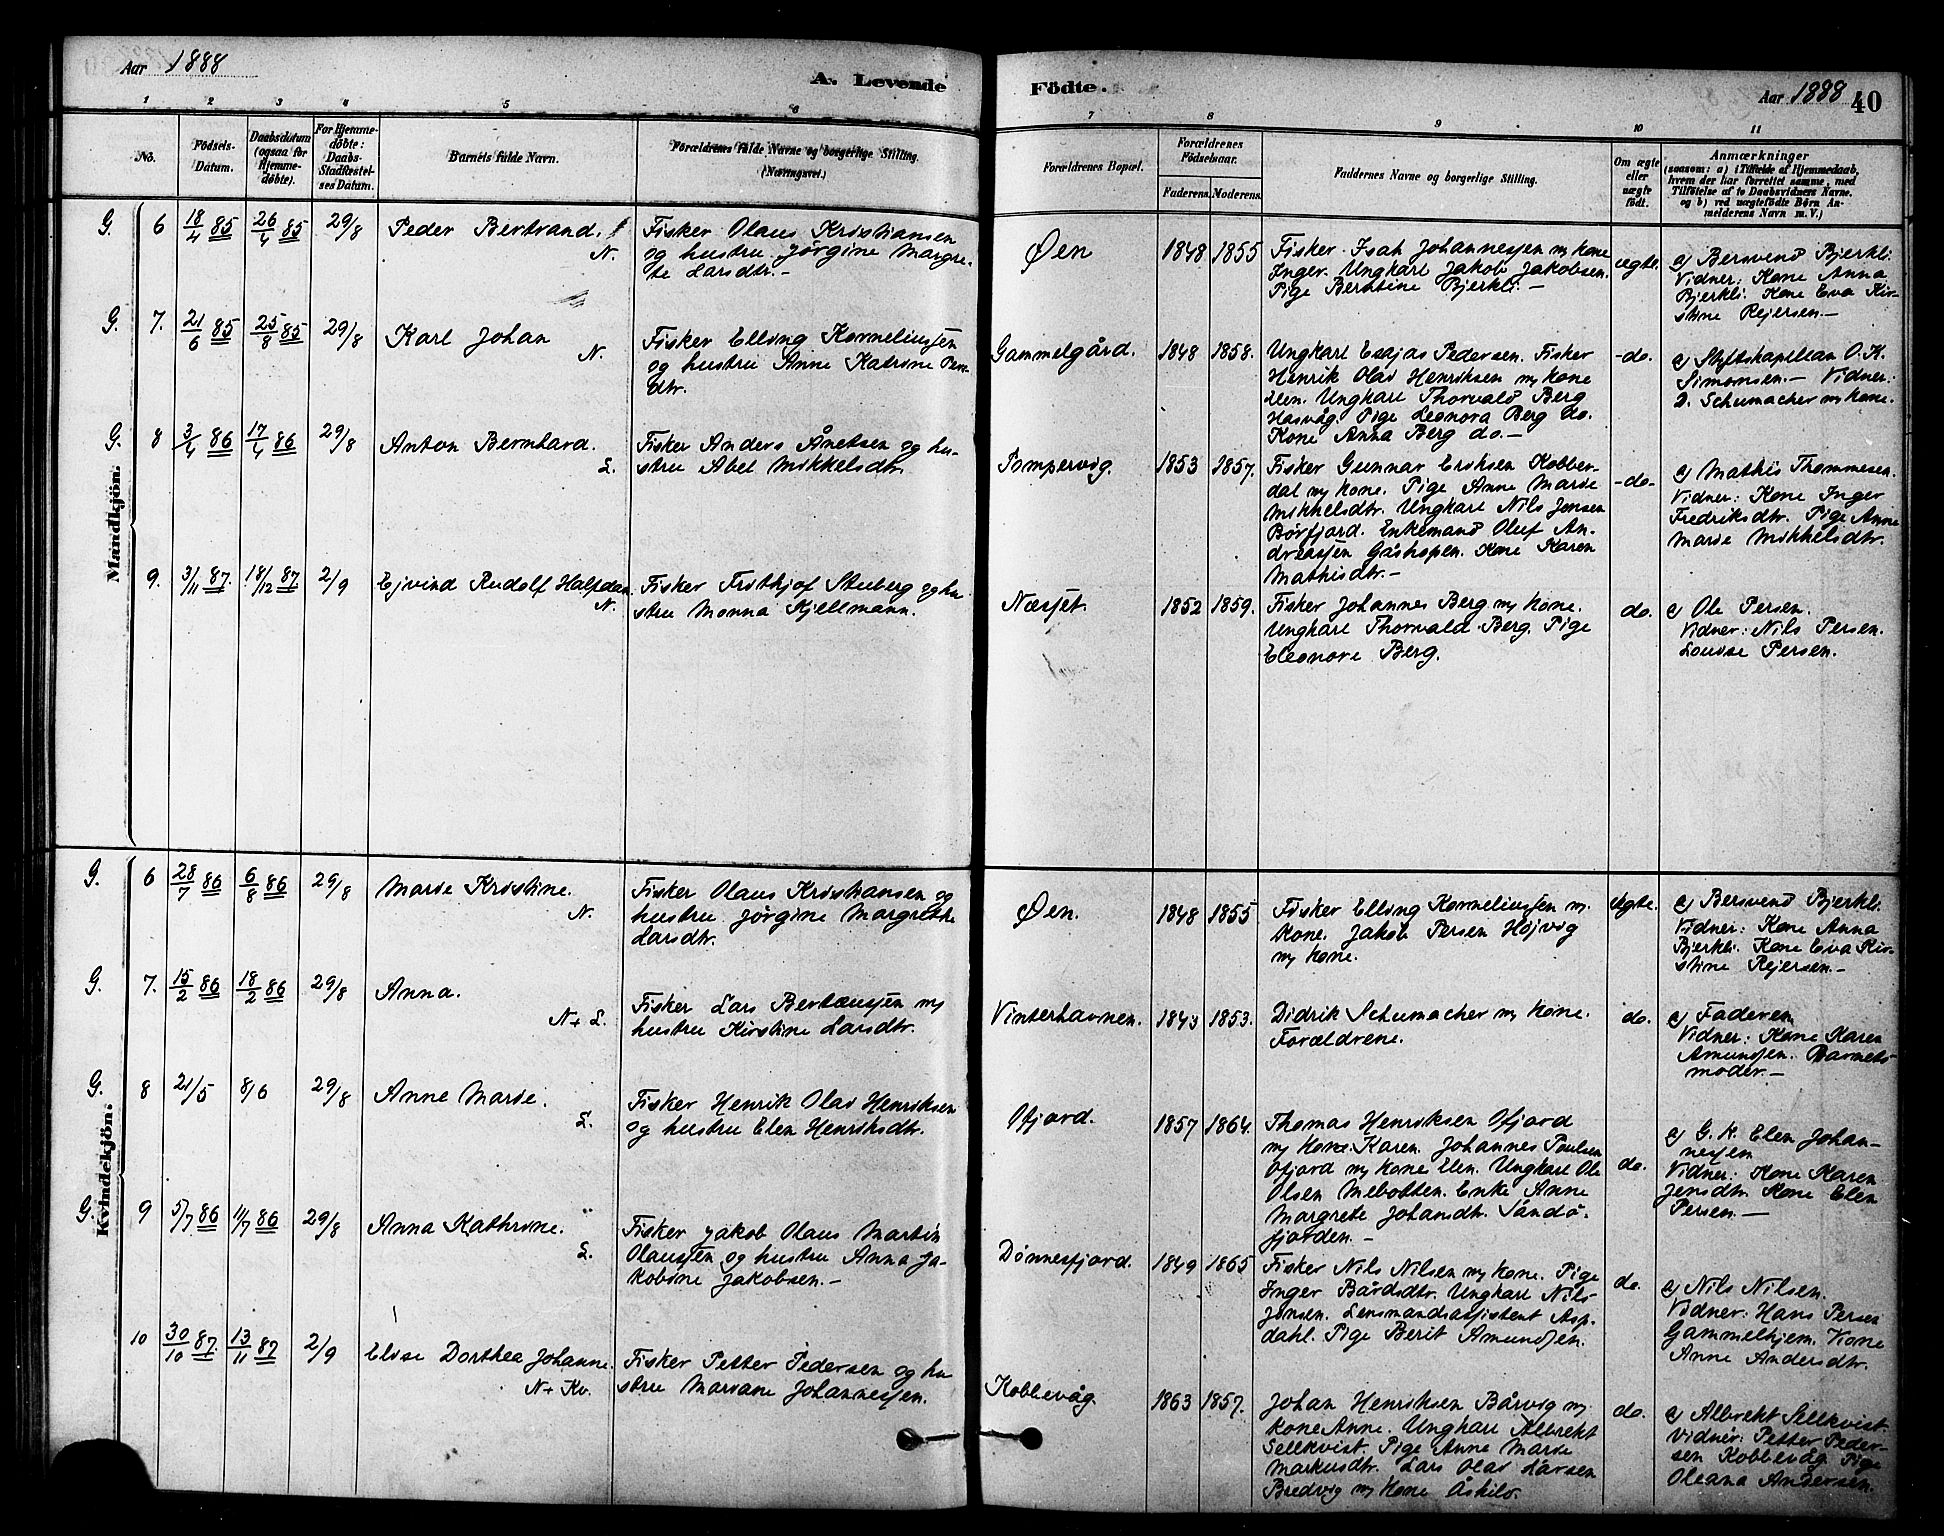 Aar 1888
A. Levende
1 2 3 4 5 6
No.
Födsels-
Datum.
Daabsdatum
(ogsaa for
Hjemme-
döbte).
For Hjemme-
döbte:
Daabs-
Stadfæstel-
ses Datum.
Barnets fulde Navn.
Forældrenes fulde Navne og borgerlige Stilling.
(Næringsvei.)
Mandkjön.
G. 6 18/4 85 26/4 85 29/8 Peder Bertrand. N.
Fisker Olaus Kristiansen
og hustru Jørgine Margre-
te Larsdtr. -
G. 7. 21/6 85 25/8 85 29/8 Karl Johan N.
Fisker Elling Korneliussen
og hustru Anne Katrine
dtr.
G. 8 3/4 86 17/4 86 29/8 Anton Bernhard. L.
Fisker Anders Ånetsen og hu-
stru Abel Mikkelsdtr.
9. 3/11 87. 18/12 87 2/9 Ejvind Rudolf Halfdan N.
Fisker Frithjof Stuberg og hu
stru Monna Kjellmann.
Kvindekjön.
G. 6 28/7 86 6/8 86 29/8 Marie Kristine. N.
Fisker Olaus Kristiansen og
hustru Jørgine Margrethe
Larsdtr.
G. 7. 15/2 86 18/2 86 29/8 Anna. N + L.
Fisker Lars Berteussen m/
hustru Kirstine Larsdtr.
G. 8 21/5 8/6 29/8 Anne Marie. L.
Fisker Henrik Olai Henriksen
og hustru Elen Henriksdtr.
G. 9 5/7 86 11/7 86 29/8 Anna Kathrine. L.
Fisker Jakob Olaus Martin
Olaussen og hustru Anna Ja-
kobine Jakobsen. -
10 30/10 87. 13/11 87 2/9 Elise Dorthea Johanne. N + Kv.
Fisker Petter Pedersen og hu
stru Mariane Johannessen.
Födte.
Aar 1888 40
7 8 9 10 11
Forældrenes Bopæl.
Forældrenes
Födselsaar.
Faderens. Moderens.
Faddernes Navne og borgerlige Stilling.
Om ægte
eller
uægte
födt.
Anmærkninger
(saasom: a) i Tilfælde af Hjemmedaab,
hvem der har forrettet samme, med
Tilföielse af to Daabsvidners Navne.
og b) ved uægtefödte Börn An-
melderens Navn m. V.)
Øen 1848 1855
Fisker Isak Johannessen m/ kone
Inger. Ungkarl Jakob Jakobsen.
Pige Berntine Bjerkli. -
ægte.
a) Bersvend Bjerkli.
Vidner: Kone Anna
Bjerkli. Kone Eva Kir-
stine Rejersen. -
Gammelgård. 1848 1858.
Ungkarl Esajas Pedersen. Fisker
Henrik Olai Henriksen m/ kone
Elen. Ungkarl Thorvald Berg
Hasvåg. Pige Leonora Berg do.
Kone Anna Berg do. -
- do.
a) Stiftskapellan O. K.
Simonsen. - Vidner:
D. Schumacher m/ kone.
Pompervig. 1853 1857.
Fisker Gunnar Eriksen Kobber-
dal m/ kone. Pige Anne Marie
Mikkelsdtr. Ungkarl Nils Jensen
Børfjord. Enkemand Oluf An-
dreassen Gåshopen. Kone Karen
Mathisdtr. -
- do -
a) Mathis Thommesen.
Vidner: Kone Inger
Fredriksdtr. Pige Anne
Marie Mikkelsdtr.
Næsset. 1852 1859.
Fisker Johannes Berg m/ kone.
Ungkarl Thorvald Berg. Pige
Eleonore Berg.
do.
a) Ole Persen.
Vidner: Nils Persen.
Louise Persen.
Øen. 1848 1855
Fisker Elling Korneliussen m.
kone. Jakob Persen Højvig
m/ kone.
Ægte.
a) Bersvend Bjerkli
Vidner: Kone Anna
Bjerkli. Kone Eva Kir-
stine Rejersen. -
Vinterhavnen. 1843 1853.
Didrik Schumacher m/ kone.
Forældrene.
do.
a) Faderen
Vidner: Kone Karen
Amundsen. Barnets
moder. -
Ofjord. 1857 1864.
Thomas Henriksen Ofjord
m/ kone Karen. Johannes Paulsen
Ofjord m/ kone Elen. Ungkarl Ole
Olsen Mebotten. Enke Anne
Margrete Johansdtr. Sandø-
fjorden. -
do.
a) G. k. Elen Johan-
nessen
Vidner: Kone Karen
Jensdtr. Kone Elen
Persen. -
Dønnesfjord. 1849 1865
Fisker Nils Nilsen m/ kone. Pige
Inger Bårdsdtr. Ungkarl Nils
Jensen. Lensmandsassistent Asp-
dahl. Pige Berit Amundsen.
do.
a) Nils Nilsen.
Vidner: Hans Persen
Gammelhjem. Kone
Anne Andersdtr.
Kobbevåg. 1863 1857.
Johan Henriksen Bårvig m/
kone Anne. Ungkarl Albrekt
Sellkvist. Pige Anne Marie
Markusdtr. Lars Olai Larsen
Bredvig m/ kone Åshild.
do.
a) Albrekt Sellkvist.
Vidner: Petter Peder-
sen Kobbevåg. Pige
Oleana Andersen.